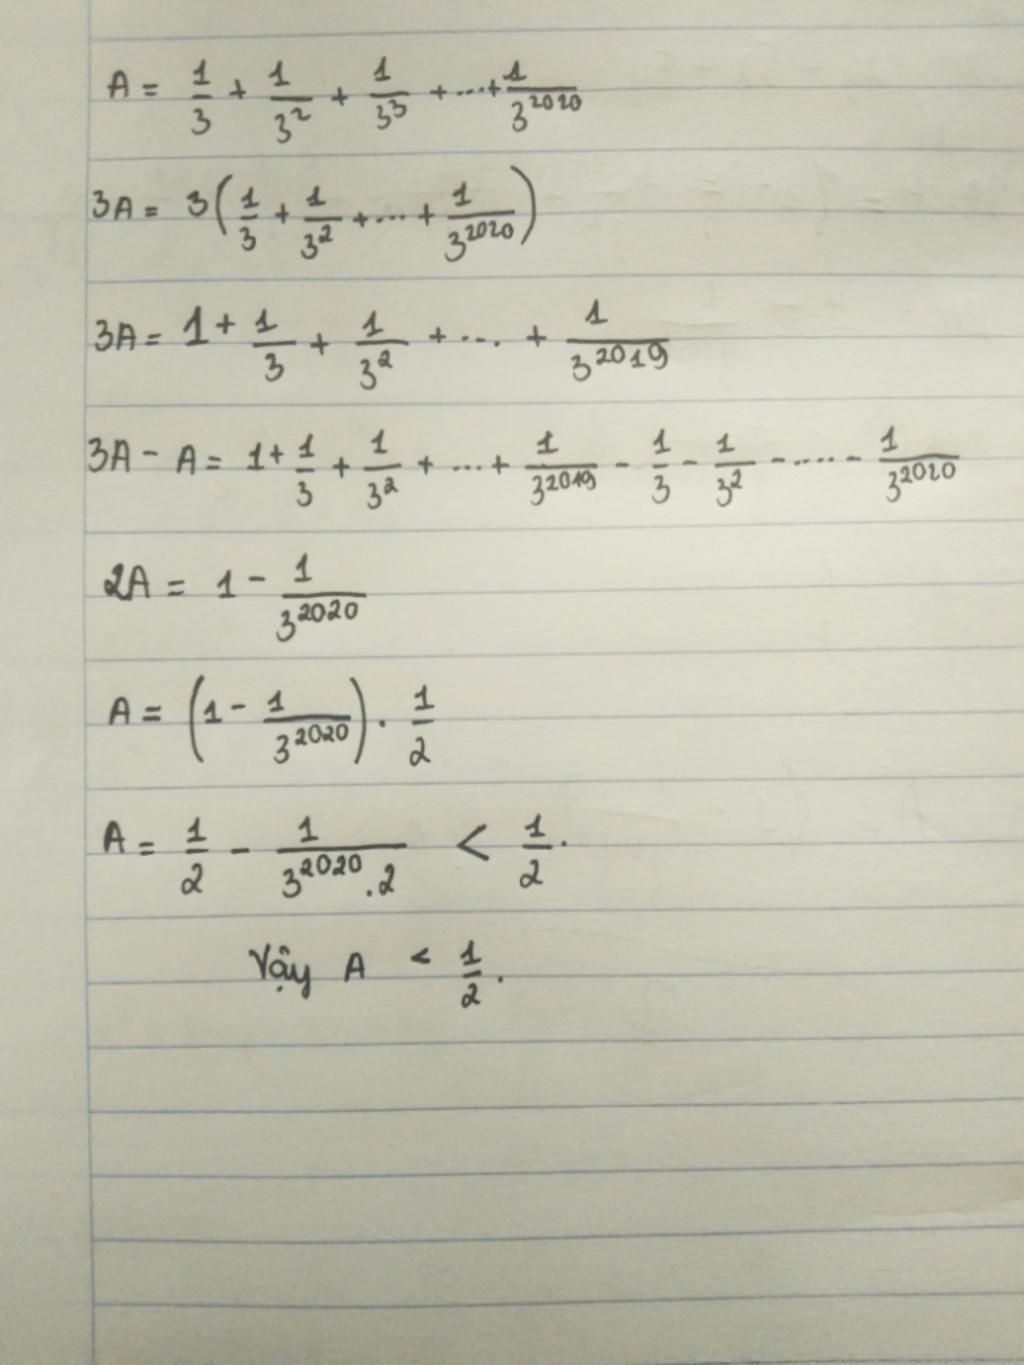 A = 1/3 + 1/3² + 1/3³ + ... + 1/3²⁰²⁰
3A = 3(1/3 + 1/3² + ... + 1/3²⁰²⁰)
3A = 1 + 1/3 + 1/3² + .... + 1/3²⁰¹⁹
3A - A = 1 + 1/3 + 1/3² + ... + 1/3²⁰¹⁹ - 1/3 - 1/3² - ..... - 1/3²⁰²⁰
2A = 1 - 1/3²⁰²⁰
A = (1 - 1/3²⁰²⁰) . 1/2
A = 1/2 - 1/(3²⁰²⁰ . 2) < 1/2.
Vậy A < 1/2.